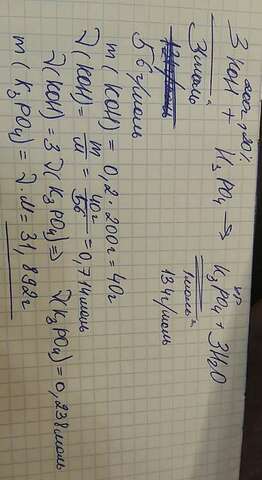 200г, 20% m-?
3KOH + H3PO4 → K3PO4 + 3H2O
3моль 1моль
56г/моль 134г/моль
m(KOH) = 0,2 · 200г = 40г
ν(KOH) = m/M = 40г/56 = 0,714моль
ν(KOH) = 3ν(K3PO4) ⇒ ν(K3PO4) = 0,238моль
m(K3PO4) = ν·M = 31,892г